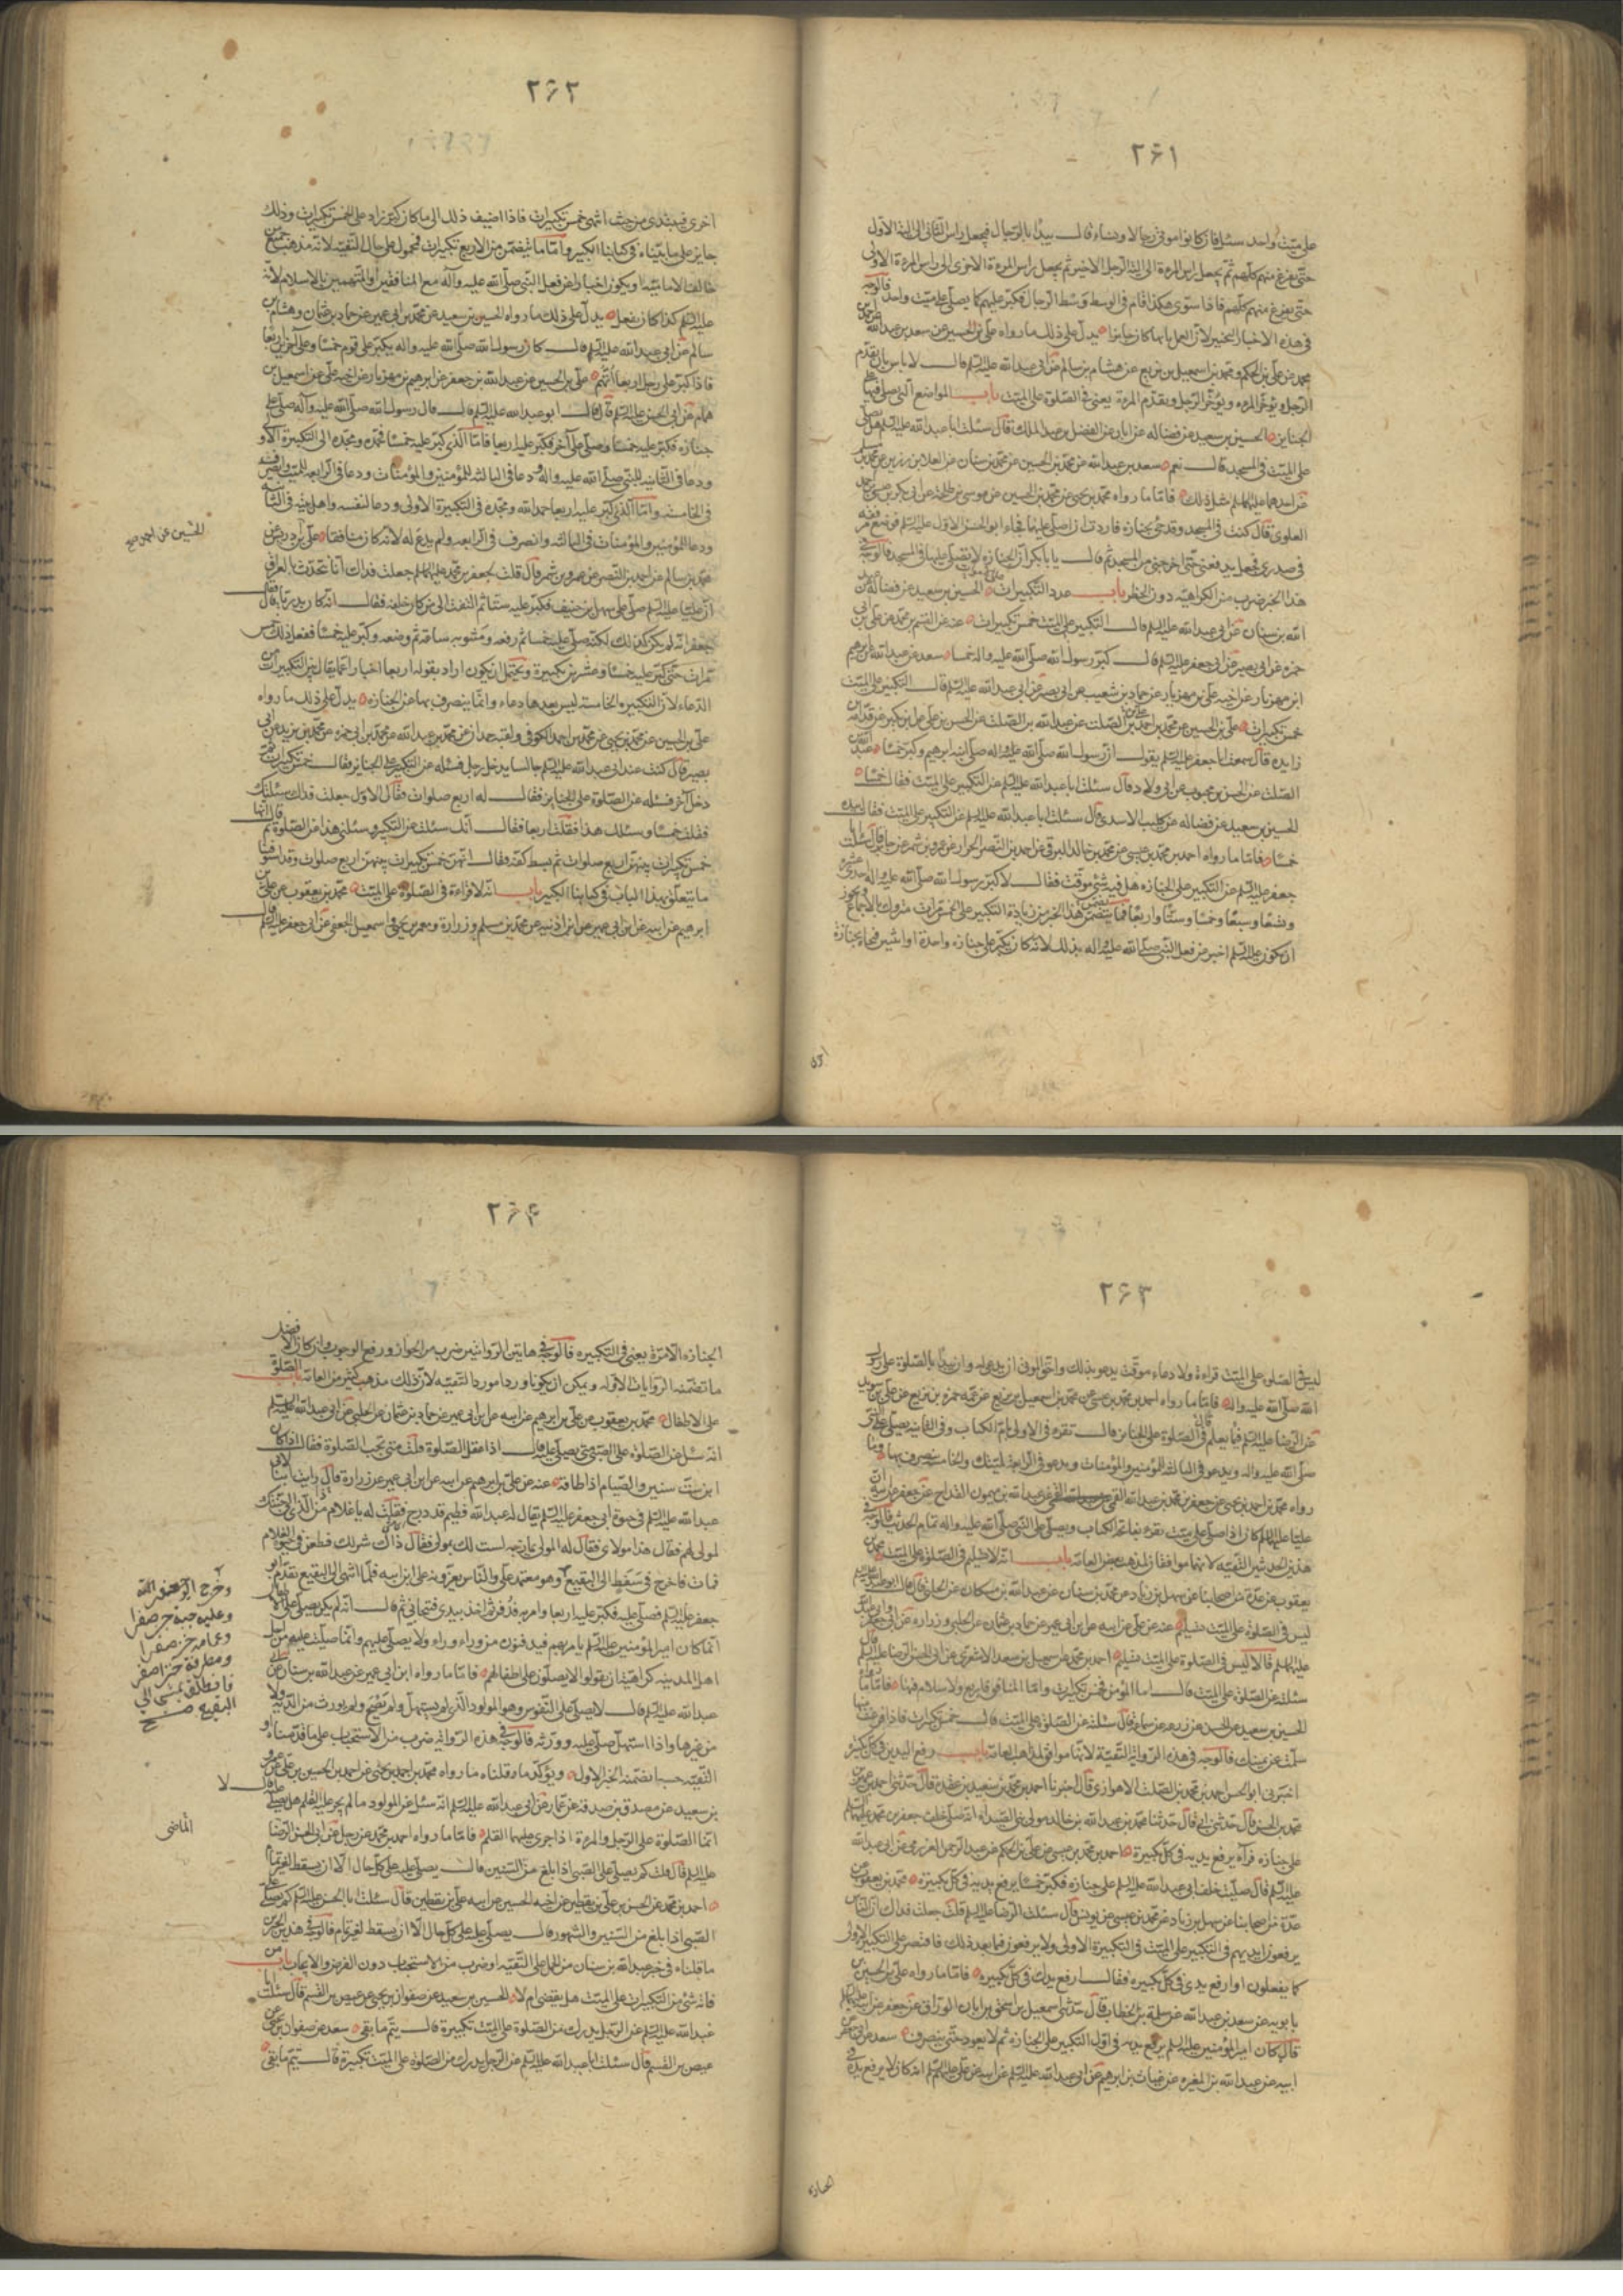 ۲۶۱
على ميت واحد سئل فان كانوا موتى رجالا ونساء قال يبدأ بالرجال فيجعل راس الثانى الى الية الاول
حتى يفرغ منهم كلهم ثم يجعل راس المرءة الى الية الرجل الاخير ثم يجعل راس المرءة الاخرى الى راس المرءة الاولى
حتى يفرغ منهم كلهم فاذا سوى هكذا قام فى الوسط وسط الرجال فكبر عليهم كما يصلى على ميت واحد فالوجه
فى هذه الاخبار التخيير لان العمل بايها كان جايزا يدل على ذلك ما رواه على بن الحسين عن سعد بن عبد الله عن
محمد عن على بن الحكم ومحمد بن اسمعيل بن بزيع عن هشام بن سالم عن ابى عبد الله عليه السلم قال لا باس بان يقدم
الرجل ويؤخر المرءة ويؤخر الرجل ويقدم المرءة يعنى فى الصلوة على الميت باب المواضع التى يصلى فيها على
الجنايز الحسين بن سعيد عن فضاله عن ابان عن الفضل بن عبد الملك قال سئلت ابا عبد الله عليه السلم هل يصلى
على الميت فى المسجد قال نعم سعد بن عبد الله عن محمد بن الحسين عن محمد بن سنان عن العلا بن رزين عن محمد بن مسلم
عن احدهما عليهما السلم مثل ذلك فاما ما رواه محمد بن يحيى عن محمد بن الحسين عن موسى بن طلحه عن ابى بكر بن عيسى بن احمد
العلوى قال كنت فى المسجد وقد جئ بجنازه فاردت ان اصلى عليها فجاء ابو الحسن الاول عليه السلم فوضع مرفقه
فى صدرى فجعل يدفعنى حتى اخرجنى من المسجد ثم قال يا بابكر ان الجنايز لا يصلى عليها فى المسجد فالوجه فى
هذا الخبر ضرب من الكراهيه دون الحظر باب عدد التكبيرات الحسين بن سعيد عن فضالة عن عبد
الله بن سنان عن ابى عبد الله عليه السلم قال التكبير على الميت خمس تكبيرات عنه عن القسم بن محمد عن على بن ابى
حمزه عن ابى بصير عن ابى جعفر عليه السلم قال كبر رسول الله صلى الله عليه واله خمسا سعد عن عبد الله عن ابرهيم
ابن مهزيار عن اخيه على بن مهزيار عن حماد بن شعيب عن ابى بصير عن ابى عبد الله عليه السلم قال التكبير على الميت
خمس تكبيرات على بن الحسين عن محمد بن احمد بن على بن الصلت عن عبد الله بن الصلت عن الحسن بن على عن ابن بكير عن قدامه بن
زايده قال سمعت ابا جعفر عليه السلم يقول ان رسول الله صلى الله عليه واله صلى على ابنه ابرهيم وكبر خمسا عبد الله بن
الصلت عن الحسن بن محبوب عن ابى ولاد قال سئلت ابا عبد الله عليه السلم عن التكبير على الميت فقال خمسا
الحسين بن سعيد عن فضاله عن كليب الاسدى قال سئلت ابا عبد الله عليه السلم عن التكبير على الميت فقال بيده
خمسا فاما ما رواه احمد بن محمد بن عيسى عن محمد بن خالد البرقى عن احمد بن النضر الخزاز عن عمرو بن شمر عن جابر قال سئلت ابا
جعفر عليه السلم عن التكبير على الجنازه هل فيه شئ موقت فقال لا كبر رسول الله صلى الله عليه واله احدى عشره
وتسعا وسبعا وخمسا وستا واربعا فما يتضمن هذا الخبر من زيادة التكبير على الخمس مرات متروك بالاجماع ويجوز
ان يكون عليه السلم اخبر عن فعل النبى صلى الله عليه واله بذلك لانه كان يكبر على جنازه واحدة او اثنين فيجاء بجنازة
اخرى
۲۶۲
اخرى فيبتدى من حيث انتهى خمس تكبيرات فاذا اضيف ذلك الى ما كان كبر زاد على الخمس تكبيرات وذلك
جايز على ما بيناه فى كتابنا الكبير واما ما يتضمن من الاربع تكبيرات فمحمول على حال التقيه لانه مذهب جميع من
خالف الاماميه او يكون اخبارا عن فعل النبى صلى الله عليه وآله مع المنافقين او المتهمين بالاسلام لانه
عليه السلم كذا كان يفعل يدل على ذلك ما رواه الحسين بن سعيد عن محمد بن ابى عمير عن حماد بن عثمان وهشام بن
سالم عن ابى عبد الله عليه السلم قال كان رسول الله صلى الله عليه واله يكبر على قوم خمسا وعلى آخرين اربعا
فاذا كبر على رجل اربعا اتهم على بن الحسين عن عبد الله بن جعفر عن ابرهيم بن مهزيار عن اخيه على عن اسمعيل بن
همام عن ابى الحسن عليه السلم قال قال ابو عبد الله عليه السلم قال رسول الله صلى الله عليه وآله صلى على
جنازه فكبر عليه خمسا وصلى على آخر فكبر عليه اربعا فاما الذى كبر عليه خمسا فحمد ومجده الى التكبيرة الاولى
ودعا فى الثانيه للنبى صلى الله عليه واله ودعا فى الثالثه للمؤمنين والمؤمنات ودعا فى الرابعه للميت وانصرف
فى الخامسه واما الذى كبر عليه اربعا حمد الله ومجده فى التكبيرة الاولى ودعا لنفسه واهل بيته فى الثانيه
ودعا للمؤمنين والمؤمنات فى الثالثه وانصرف فى الرابعه ولم يدع له لانه كان منافقا على بن الحسين عن
محمد بن سالم عن احمد بن النضر عن عمرو بن شمر قال قلت لجعفر بن محمد عليهما السلم جعلت فداك انا نتحدث بالعراق
ان عليا عليه السلم صلى على سهل بن حنيف فكبر عليه ستا ثم التفت الى من كان خلفه فقال انه كان بدريا قال فقال
جعفر انه لم يكن كذلك لكنه صلى عليه خمسا ثم رفعه ومشى به ساعة ثم وضعه وكبر عليه خمسا ففعل ذلك خمس
مرات حتى كبر عليه خمسا وعشرين تكبيرة ويحتمل ان يكون اراد بقوله اربعا اخبارا عما يقال بين التكبيرات من
الدعاء لان التكبيره الخامسه ليس بعدها دعاء وانما ينصرف بها عن الجنازه يدل على ذلك ما رواه
على بن الحسين عن محمد بن يحيى عن محمد بن احمد الكوفى ولقبه حمدان عن محمد بن عبد الله عن محمد بن ابى حمزه عن محمد بن يزيد عن ابى
بصير قال كنت عند ابى عبد الله عليه السلم جالسا فدخل رجل فسئله عن التكبير على الجنايز فقال خمس تكبيرات ثم
دخل آخر فسئله عن الصلوة على الجنايز فقال له اربع صلوات فقال الاول جعلت فداك سئلتك
فقلت خمسا وسئلك هذا فقلت اربعا فقال انك سئلتنى عن التكبير وسئلنى هذا عن الصلوة ثم قال انها
خمس تكبيرات بينهن اربع صلوات ثم بسط كفه فقال انهن خمس تكبيرات بينهن اربع صلوات وقد استوفينا
ما يتعلق بهذا الباب فى كتابنا الكبير باب انه لا قراءة فى الصلوة على الميت محمد بن يعقوب عن على بن
ابرهيم عن ابيه عن ابن ابى عمير عن ابن اذينه عن محمد بن مسلم وزرارة ومعمر بن يحيى واسمعيل الجعفى عن ابى جعفر عليه السلم قال
الحسين عن احمد صح
۲۶۳
ليس فى الصلوة على الميت قراءة ولا دعاء موقت يدعو بذلك واحق الموتى ان يدعو له وان يبدأ بالصلوة على رسول
الله صلى الله عليه واله فاما ما رواه احمد بن محمد بن عيسى عن محمد بن اسمعيل بن بزيع عن عمه حمزه بن بزيع عن على بن سويد
عن الرضا عليه السلم فيما يعلم قال فى الصلوة على الجنايز قال تقرء فى الاولى بام الكتاب وفى الثانيه تصلى على النبى
صلى الله عليه واله ويدعو فى الثالثه للمؤمنين والمؤمنات ويدعو فى الرابعه لميتك والخامسه ينصرف بها وما
رواه محمد بن احمد بن يحيى عن جعفر بن محمد بن عبد الله القمى عن عبد الله بن ميمون القداح عن جعفر عن ابيه ان
عليا عليه السلم كان اذا صلى على ميت يقرء بفاتحة الكتاب ويصلى على النبى صلى الله عليه واله تمام الحديث فالوجه فى
هذين الحديثين التقيه لانهما موافقان لمذهب بعض العامه باب انه لا تسليم فى الصلوة على الميت محمد بن
يعقوب عن عدة من اصحابنا عن سهل بن زياد عن محمد بن سنان عن عبد الله بن مسكان عن الحلبى قال قال ابو عبد الله عليه السلم
ليس فى الصلوة على الميت تسليم عنه عن على عن ابيه عن ابن ابى عمير عن حماد بن عثمان عن الحلبى وزراره عن ابى جعفر وابى عبد الله
عليهما السلم قالا ليس فى الصلوة على الميت تسليم احمد بن محمد عن اسمعيل بن سعد الاشعرى عن ابى الحسن الرضا عليه السلم قال
سئلته عن الصلوة على الميت قال اما المؤمن فخمس تكبيرات واما المنافق فاربع ولا سلام فيها فاما ما رواه
الحسين بن سعيد عن الحسن عن زرعه عن سماعه قال سئلته عن الصلوة على الميت قال خمس تكبيرات فاذا فرغت منها
سلمت عن يمينك فالوجه فى هذه الرواية التقية لانها موافق لمذاهب العامة باب رفع اليدين فى كل تكبيرة
اخبرنى ابو الحسن احمد بن محمد بن الصلت الاهوازى قال اخبرنا احمد بن محمد بن سعيد بن عقده قال حدثنى احمد بن عمر بن
محمد بن الحسن قال حدثنى ابى قال حدثنا محمد بن عبد الله بن خالد مولى بنى الصيداء انه صلى خلف جعفر بن محمد عليهما السلم
على جنازه فرآه يرفع يديه فى كل تكبيرة احمد بن محمد بن عيسى عن على بن الحكم عن عبد الرحمن العرزمى عن ابى عبد الله
عليه السلم قال صليت خلف ابى عبد الله عليه السلم على جنازه فكبر خمسا يرفع يديه فى كل تكبيرة محمد بن يعقوب عن
عدة من اصحابنا عن سهل بن زياد عن محمد بن عيسى عن يونس قال سئلت الرضا عليه السلم قلت جعلت فداك ان الناس
يرفعون ايديهم فى التكبير على الميت فى التكبيرة الاولى ولا يرفعون فيما بعد ذلك فاقتصر على التكبيرة الاولى
كما يفعلون او ارفع يدى فى كل تكبيره فقال ارفع يدك فى كل تكبيره فاما ما رواه على بن الحسين بن
بابويه عن سعد بن عبد الله عن سلمة بن الخطاب قال حدثنى اسمعيل بن اسحق بن ابان الوراق عن جعفر عن ابيه عليهما السلم
قال كان امير المؤمنين عليه السلم يرفع يديه فى اول التكبير على الجنازه ثم لا يعود حتى ينصرف سعد عن ابى جعفر عن
ابيه عن عبد الله بن المغيره عن غياث بن ابرهيم عن ابى عبد الله عليه السلم عن ابيه عن على عليهم السلم انه كان لا يرفع يده فى
الجنازه
۲۶۴
الجنازه الا مرة يعنى فى التكبيره فالوجه فى هاتين الروايتين ضرب من الجواز ورفع الوجوب وان كان الافضل
ما تضمنه الروايات الاوله ويمكن ان يكونا وردا مورد التقيه لان ذلك مذهب كثير من العامه باب الصلوة
على الاطفال محمد بن يعقوب عن على بن ابرهيم عن ابيه عن ابن ابى عمير عن حماد بن عثمان عن الحلبى عن ابى عبد الله عليه السلم
انه سئل عن الصلوة على الصبى متى يصلى عليه قال اذا عقل الصلوة قلت متى تجب الصلوة فقال اذا كان
ابن ست سنين والصيام اذا طاقه عنه عن على بن ابرهيم عن ابيه عن ابن ابى عمير عن زرارة قال رايت ابنا لابى
عبد الله عليه السلم فى حيوة ابى جعفر عليه السلم يقال له عبد الله فطيم قد درج فقلت له يا غلام من ذا الذى الى جنبك
لمولى لهم فقال هذا مولاى فقال له المولى يمازحه لست لك مولى فقال ذاك شر لك فطعن فى جنازة الغلام
فمات فاخرج فى سفط الى البقيع وهو معتمد على والناس يعزونه على ابن ابنه فلما انتهى الى البقيع تقدم ابو
جعفر عليه السلم فصلى عليه فكبر عليه اربعا وامر به فدفن ثم اخذ بيدى فتنحا بى ثم قال انه لم يكن يصلى على الاطفال
انما كان امير المؤمنين عليه السلم يامر بهم فيدفنون من وراء وراء ولا يصلى عليهم وانما صليت عليه من اجل
اهل المدينه كراهية ان يقولوا لا يصلون على اطفالهم فاما ما رواه ابن ابى عمير عن عبد الله بن سنان عن ابى
عبد الله عليه السلم قال لا يصلى على المنفوس وهو المولود الذى لم يستهل ولم يصح ولم يورث من الدية ولا
من غيرها واذا استهل صلى عليه وورثه فالوجه فى هذه الرواية ضرب من الاستحباب على ما قدمناه او
التقيه حسبما تضمنه الخبر الاول ويؤكد ما قلناه ما رواه محمد بن احمد بن يحيى عن احمد بن الحسين بن على عن عمرو
بن سعيد عن مصدق بن صدقه عن عمار عن ابى عبد الله عليه السلم انه سئل عن المولود ما لم يجر عليه القلم هل يصلى عليه قال لا
انما الصلوة على الرجل والمرءة اذا جرى عليهما القلم فاما ما رواه احمد بن محمد عن رجل عن ابى الحسن الرضا
عليه السلم قال قلت لكم يصلى على الصبى اذا بلغ من السنين قال يصلى عليه على كل حال الا ان يسقط لغير تمام
احمد بن محمد عن الحسن بن على بن يقطين عن اخيه الحسين عن ابيه على بن يقطين قال سئلت ابا الحسن عليه السلم لكم يصلى على
الصبى اذا بلغ من السنين والشهور قال يصلى عليه على كل حال الا ان يسقط لغير تمام فالوجه فى هذين الخبرين
ما قلناه فى خبر عبد الله بن سنان من الحمل على التقيه او ضرب من الاستحباب دون الفرض والايجاب باب من
فاته شئ من التكبيرات على الميت هل يقضى ام لا الحسين بن سعيد عن صفوان بن يحيى عن عيص بن القسم قال سئلت ابا
عبد الله عليه السلم عن الرجل يدرك من الصلوة على الميت تكبيرة قال يتم ما بقى سعد عن صفوان بن يحيى عن
عيص بن القسم قال سئلت ابا عبد الله عليه السلم عن الرجل يدرك من الصلوة على الميت تكبيرة قال يتم ما بقى
وخرج ابو جعفر عليه
وعليه جبة خز صفرا
وعمامه خز صفرا
ومطرف خز اصفر
فانطلق يمشى الى
البقيع صح
الماضى